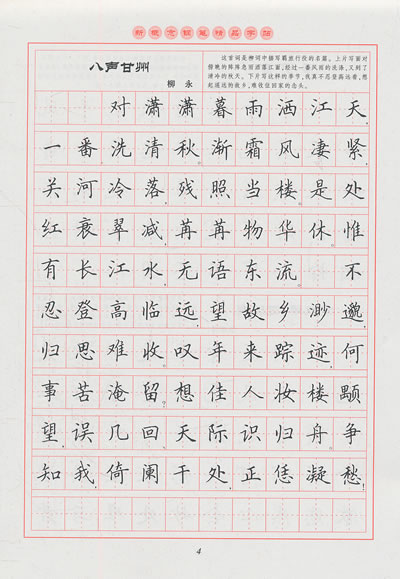 新概念钢笔精品字帖
八声甘州
柳永
这首词是柳词中描写羁旅行役的名篇。上片写面对
傍晚的阵阵急雨洒落江面,经过一番风雨的洗涤,又到了
清冷的秋天。下片写这样的季节,我真不忍登高远看,想
起遥远的故乡,难收住回家的念头。
对潇潇暮雨洒江天,
一番洗清秋。渐霜风凄紧,
关河冷落,残照当楼。是处
红衰翠减,苒苒物华休。惟
有长江水,无语东流。不
忍登高临远,望故乡渺邈,
归思难收。叹年来踪迹,何
事苦淹留。想佳人妆楼颙
望,误几回天际识归舟。争
知我,倚阑干处,正恁凝愁!
4